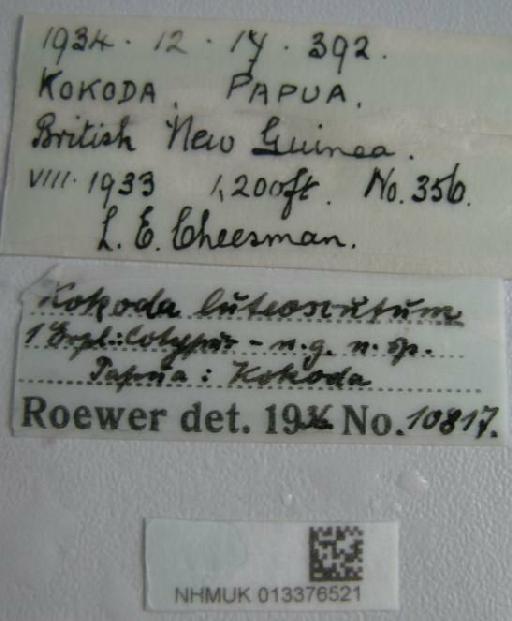 1934 · 12 · 14 · 392.
KOKODA. PAPUA.
British New Guinea.
VIII. 1933 1,200ft. No. 356.
L. E. Cheesman.
Kokoda luteoscutum
1 Expl: Cotypus – n.g. n. sp.
Papua: Kokoda
Roewer det. 19 No. 10817.
NHMUK 013376521